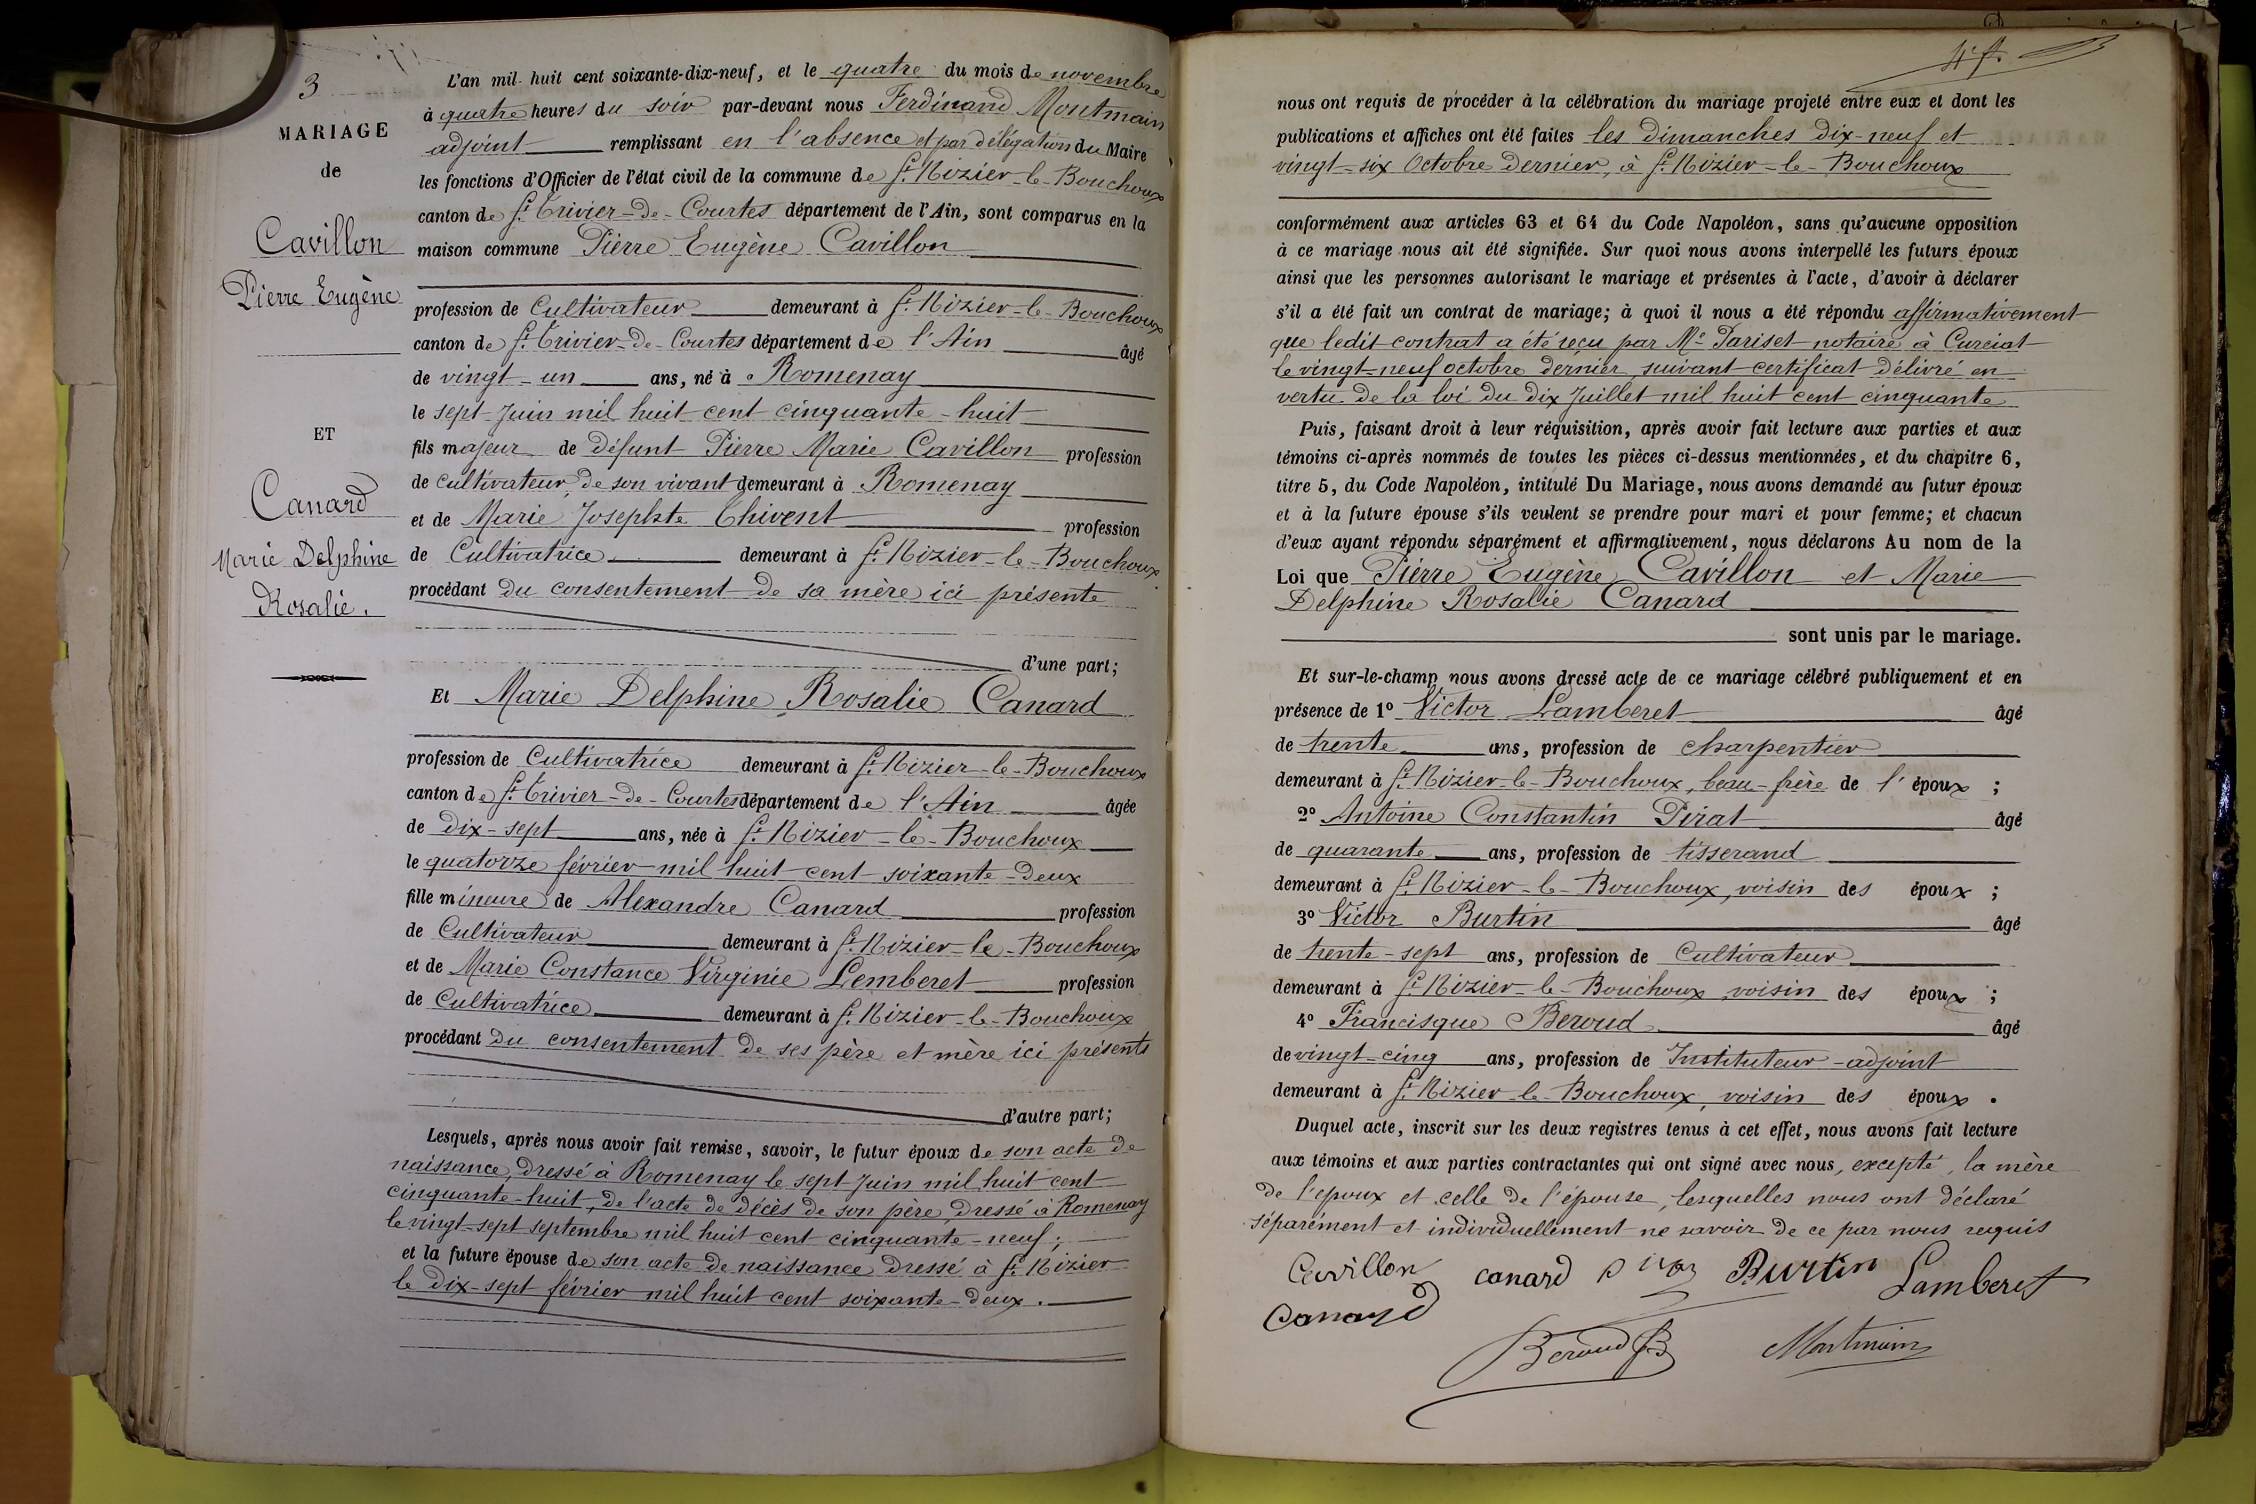 3
MARIAGE
de
Cavillon
Pierre Eugène
ET
Canard
Marie Delphine
Rosalie.
L'an mil huit cent soixante-dix-neuf, et le quatre du mois de novembre
à quatre heures du soir par-devant nous Ferdinand Montmain
adjoint remplissant en l'absence et par délégation du Maire
les fonctions d'Officier de l'état civil de la commune de St. Nizier-le-Bouchoux
canton de St. Trivier-de-Courtes département de l'Ain, sont comparus en la
maison commune Pierre Eugène Cavillon
profession de Cultivateur demeurant à St. Nizier-le-Bouchoux
canton de St. Trivier-de-Courtes département de l'Ain âgé
de vingt-un ans, né à Romenay
le sept Juin mil huit cent cinquante-huit
fils majeur de défunt Pierre Marie Cavillon profession
de cultivateur, de son vivant demeurant à Romenay
et de Marie Josephte Chivent profession
de Cultivatrice demeurant à St. Nizier-le-Bouchoux
procédant du consentement de sa mère ici présente
d'une part;
Et Marie Delphine Rosalie Canard
profession de Cultivatrice demeurant à St. Nizier-le-Bouchoux
canton de St. Trivier-de-Courtes département de l'Ain âgée
de dix-sept ans, née à St. Nizier-le-Bouchoux
le quatorze février mil huit cent soixante-deux
fille mineure de Alexandre Canard profession
de Cultivateur demeurant à St. Nizier-le-Bouchoux
et de Marie Constance Virginie Lemberet profession
de Cultivatrice demeurant à St. Nizier-le-Bouchoux
procédant du consentement de ses père et mère ici présents
d'autre part;
Lesquels, après nous avoir fait remise, savoir, le futur époux de son acte de
naissance, dressé à Romenay le sept Juin mil huit cent
cinquante-huit, de l'acte de décès de son père, dressé à Romenay
le vingt-sept septembre mil huit cent cinquante-neuf;
et la future épouse de son acte de naissance dressé à St. Nizier
le dix-sept février mil huit cent soixante-deux.
nous ont requis de procéder à la célébration du mariage projeté entre eux et dont les
publications et affiches ont été faites les dimanches dix-neuf et
vingt-six Octobre dernier, à St. Nizier-le-Bouchoux
conformément aux articles 63 et 64 du Code Napoléon, sans qu'aucune opposition
à ce mariage nous ait été signifiée. Sur quoi nous avons interpellé les futurs époux
ainsi que les personnes autorisant le mariage et présentes à l'acte, d'avoir à déclarer
s'il a été fait un contrat de mariage; à quoi il nous a été répondu affirmativement
que ledit contrat a été reçu par Me Pariset notaire à Curciat
le vingt-neuf octobre dernier, suivant certificat délivré en
vertu de la loi du dix Juillet mil huit cent cinquante
Puis, faisant droit à leur réquisition, après avoir fait lecture aux parties et aux
témoins ci-après nommés de toutes les pièces ci-dessus mentionnées, et du chapitre 6,
titre 5, du Code Napoléon, intitulé Du Mariage, nous avons demandé au futur époux
et à la future épouse s'ils veulent se prendre pour mari et pour femme; et chacun
d'eux ayant répondu séparément et affirmativement, nous déclarons Au nom de la
Loi que Pierre Eugène Cavillon et Marie
Delphine Rosalie Canard
sont unis par le mariage.
Et sur-le-champ nous avons dressé acte de ce mariage célébré publiquement et en
présence de 1º Victor Lamberet âgé
de trente ans, profession de charpentier
demeurant à St. Nizier-le-Bouchoux, beau-frère de l'époux;
2º Antoine Constantin Pirat âgé
de quarante ans, profession de tisserand
demeurant à St. Nizier-le-Bouchoux, voisin des époux;
3º Victor Burtin âgé
de trente-sept ans, profession de Cultivateur
demeurant à St. Nizier-le-Bouchoux, voisin des époux;
4º Francisque Beroud âgé
de vingt-cinq ans, profession de Instituteur-adjoint
demeurant à St. Nizier-le-Bouchoux, voisin des époux.
Duquel acte, inscrit sur les deux registres tenus à cet effet, nous avons fait lecture
aux témoins et aux parties contractantes qui ont signé avec nous, excepté, la mère
de l'époux et celle de l'épouse, lesquelles nous ont déclaré
séparément et individuellement ne savoir de ce par nous requis
Cavillon canard Burtin Lamberet
Canard
Beroud Montmain